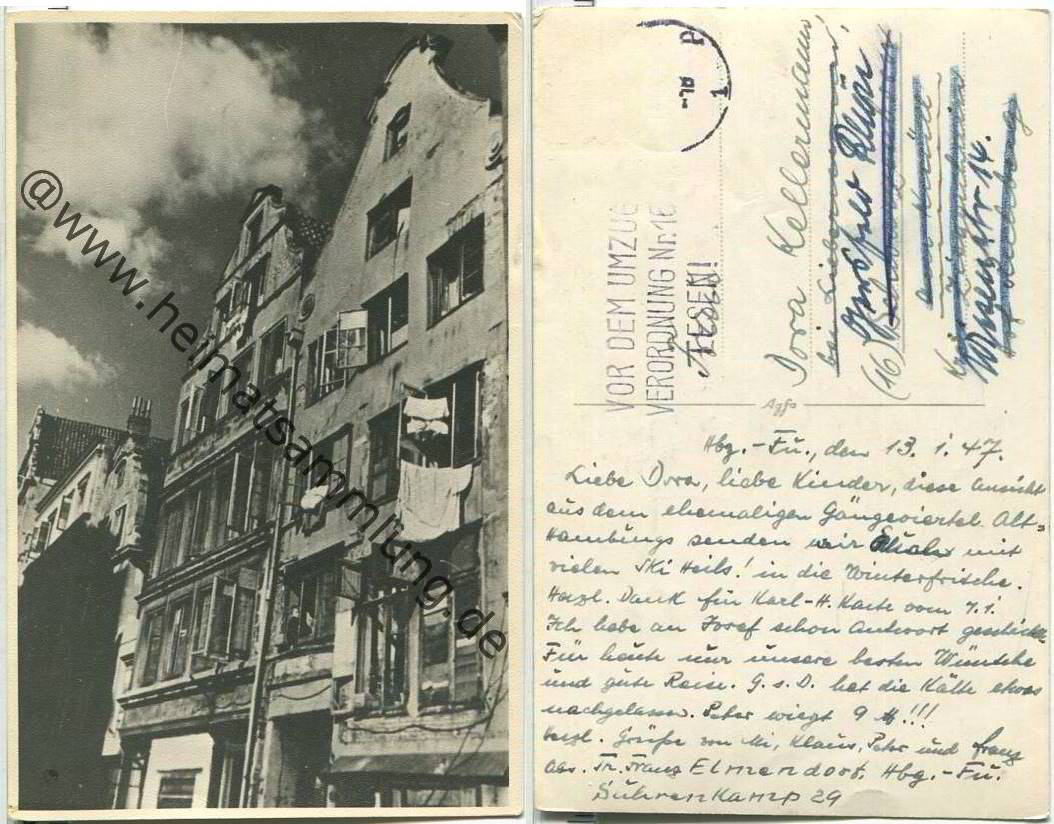 @www.heimatsammlung.de
VOR DEM UMZUG
VERORDNUNG Nr. 16
LESEN!
Dora Kellermann
bei Liebermann
(16)
Agfa
Hbg.-Fu., den 13. 1. 47.
Liebe Dora, liebe Kinder, diese Ansicht
aus dem ehemaligen Gängeviertel Alt=
Hamburgs senden wir Euch mit
vielen Ski Heils! in die Winterfrische.
Herzl. Dank für Karl-H. Karte vom 7.1.
Ich habe an Josef schon Antwort geschickt.
Für heute nur unsere besten Wünsche
und gute Reise. G. s. D. hat die Kälte etwas
nachgelassen. Peter wiegt 9 ℔!!!
Herzl. Grüße von Mi, Klaus, Peter und Franz
Abs. Franz Elmendorf. Hbg.-Fu.
Suhrenkamp 29